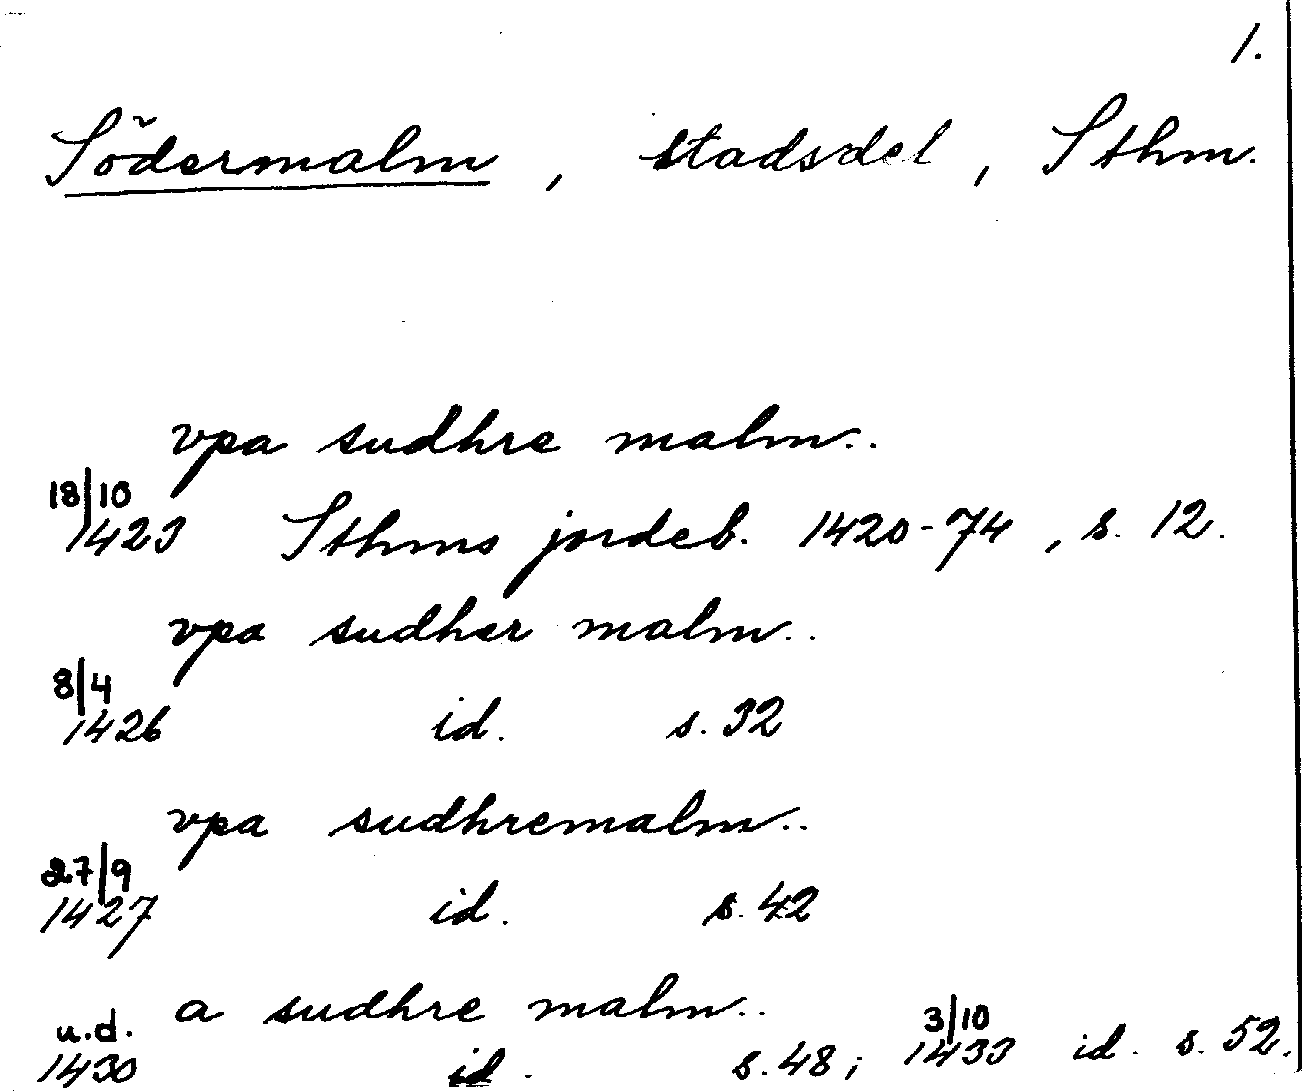 1.
Södermalm, stadsdel, Sthm.
vpa sudhre malm..
18/10
1423 Sthms jordeb. 1420-74, s. 12.
vpa sudher malm..
8/4
1426 id. s. 32
vpa sudhremalm..
27/9
1427 id. s. 42
a sudhre malm..
u.d. 3/10
1430 id. s. 48; 1433 id. s. 52.